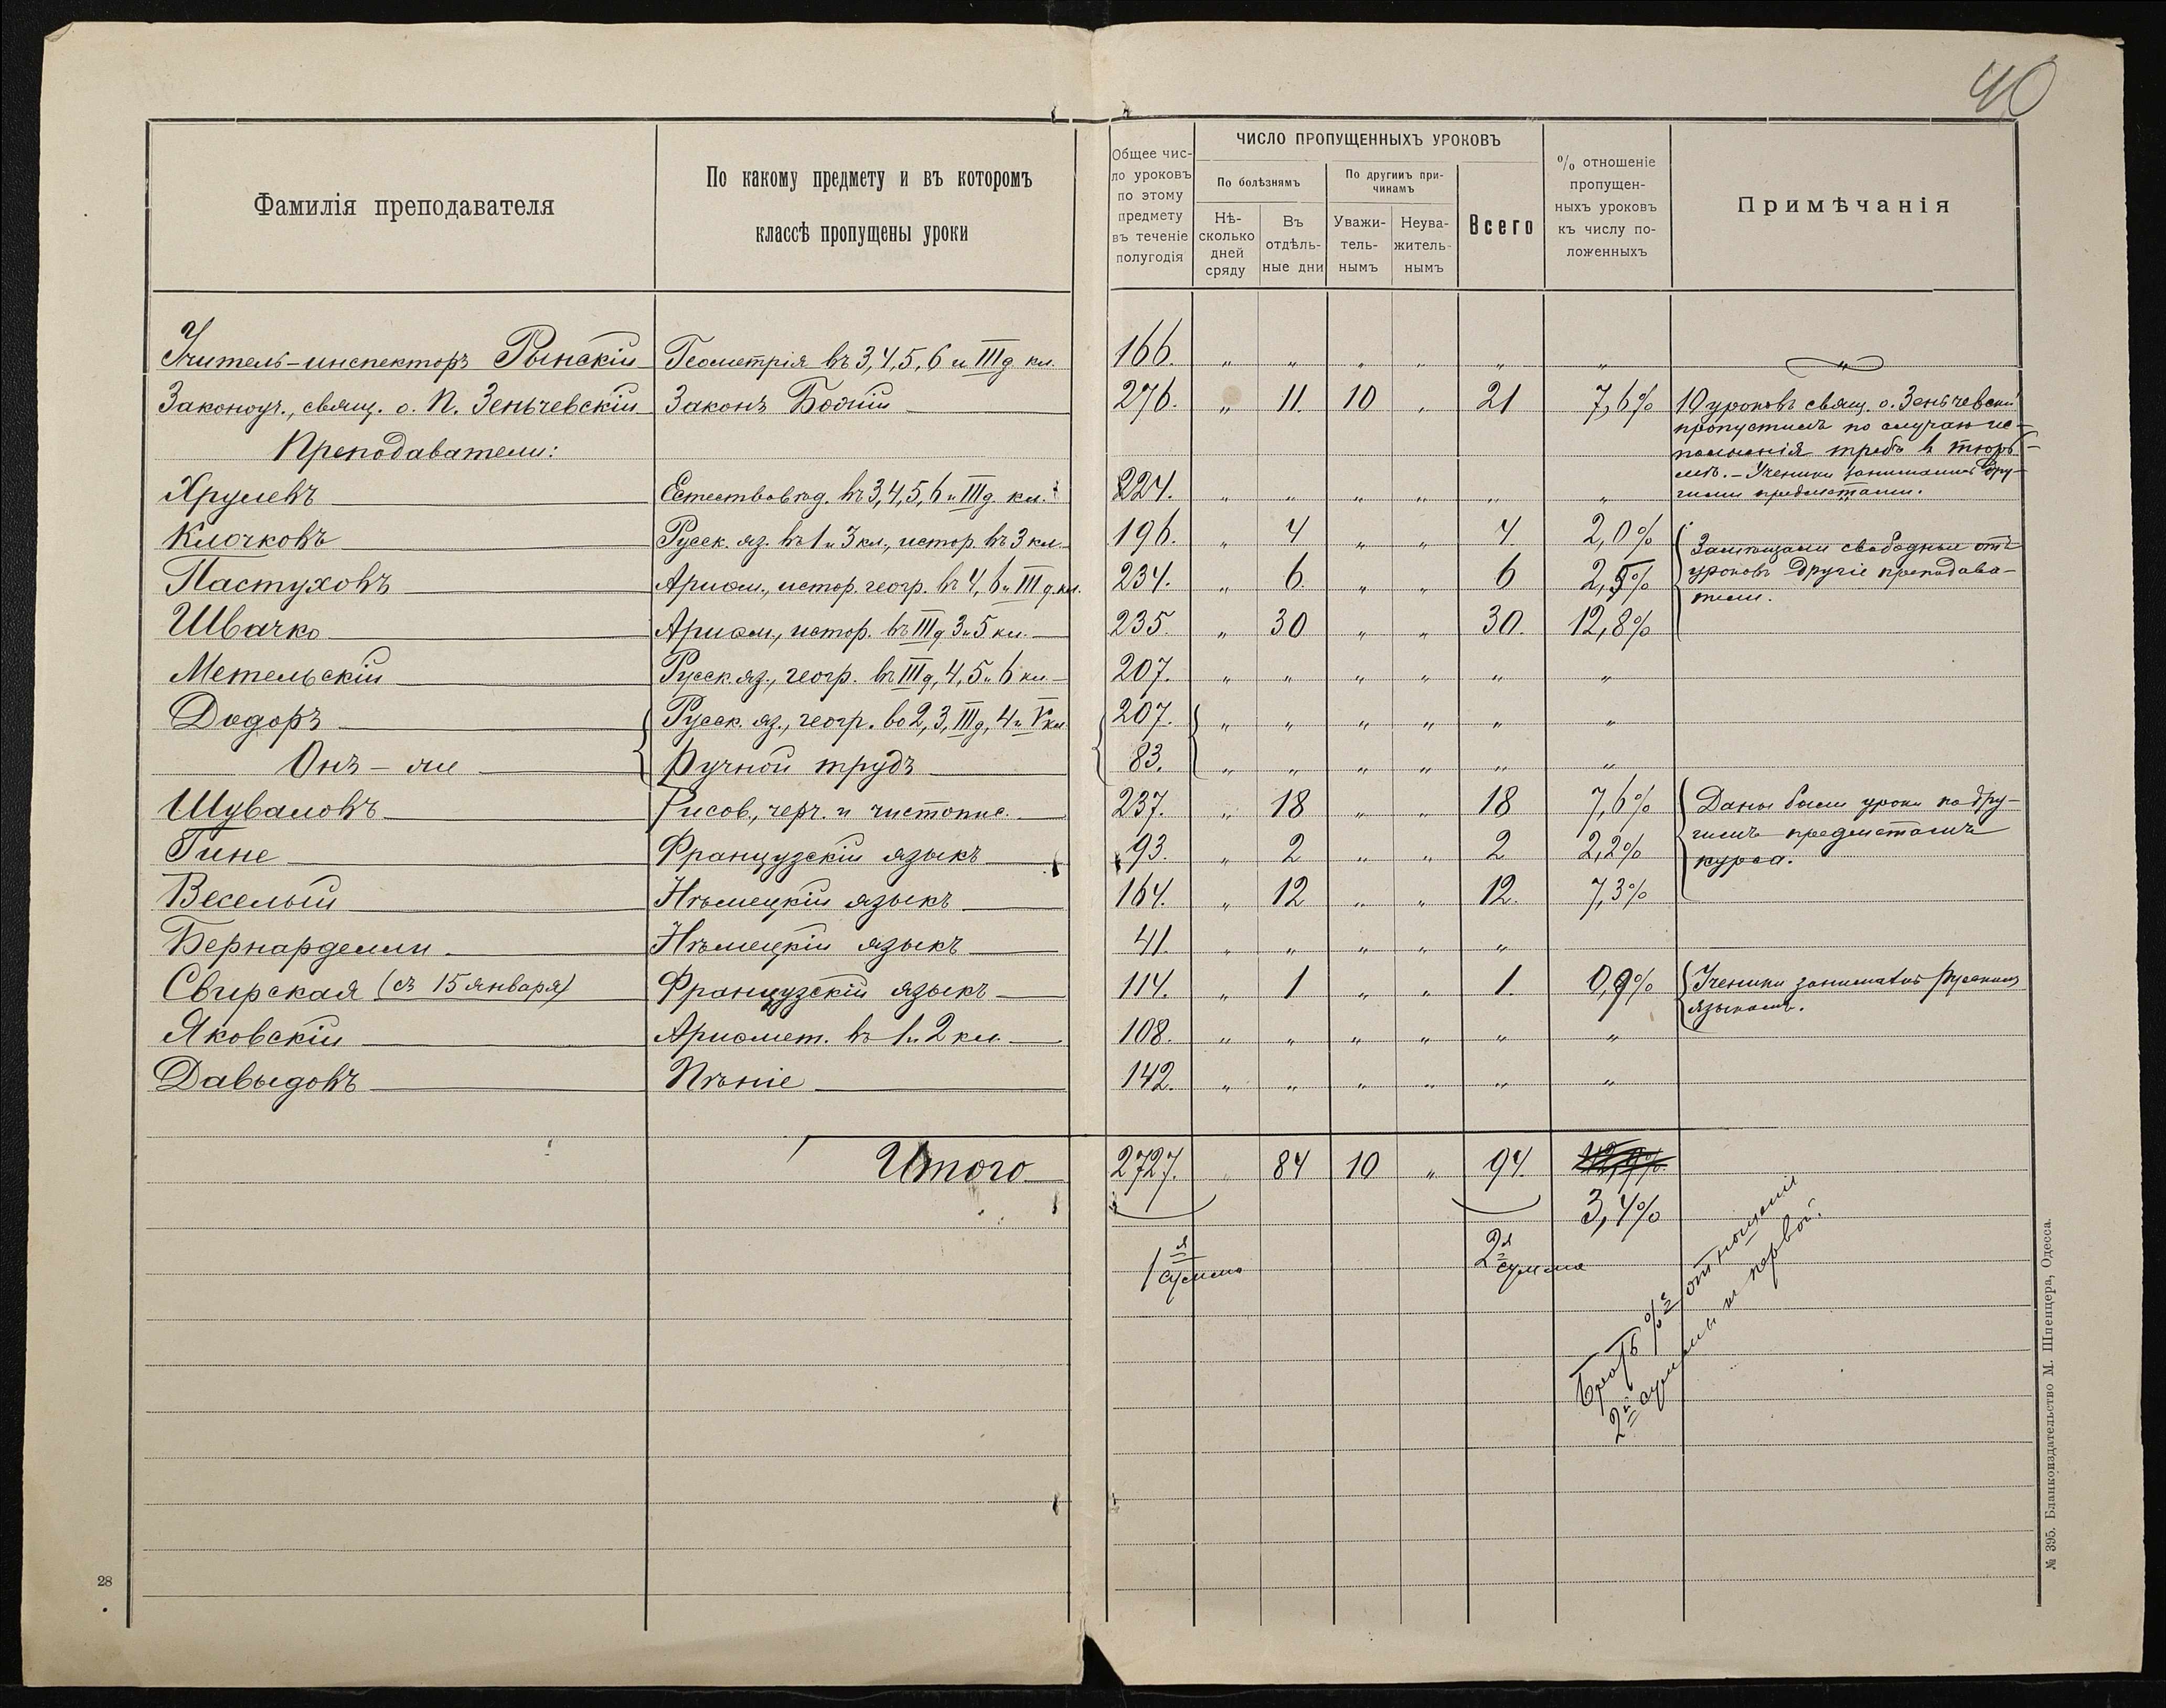 40
Фамилія преподавателя
По какому предмету и въ которомъ
классѣ пропущены уроки
Общее чис-
ло уроковъ
по этому
предмету
въ теченіе
полугодія
ЧИСЛО ПРОПУЩЕННЫХЪ УРОКОВЪ
По болѣзнямъ
Нѣ-
сколько
дней
сряду
Въ
отдѣль-
ные дни
По другимъ при-
чинамъ
Уважи-
тель-
нымъ
Неува-
житель-
нымъ
Всего
% отношеніе
пропущен-
ныхъ уроковъ
къ числу по-
ложенныхъ
Примѣчанія
Учитель-инспекторъ Рынскій Геометрія въ 3, 4, 5, 6 и IIIд кл. 166. „ „ „ „ „ „ „
Законоуч., свящ. о. П. Зеньчевскій Законъ Божій 276. „ 11. 10 „ 21 7,6% 10 уроковъ свящ. о. Зеньчевскій
пропустилъ по случаю ис-
полненія требъ въ тюрь-
мѣ. - Ученики занимались дру-
гими предметами.
Преподаватели:
Хрулевъ Естествовѣд. въ 3, 4, 5, 6 и IIIд кл. 224. „ „ „ „ „ „
Клочковъ Русск. яз. въ 1 и 3 кл., истор. въ 3 кл. 196. „ 4 „ „ 4. 2,0%
Пастуховъ Ариѳм., истор. геогр. въ 4, 6 и III д. кл. 234. „ 6. „ „ 6 2,5%
Швачко Ариѳм., истор. въ IIIд 3 и 5 кл. 235. „ 30 „ „ 30. 12,8%
Замѣщали свободные отъ
уроковъ другіе преподава-
тели.
Метельскій Русск. яз., геогр. въ IIIд, 4, 5 и 6 кл. 207. „ „ „ „ „ „
Додоръ Русск. яз., геогр. во 2, 3, IIIд, 4 и V кл. 207. „ „ „ „ „ „
Онъ-же Ручной трудъ 83. „ „ „ „ „ „
Шуваловъ Рисов., черч. и чистопис. 237. „ 18 „ „ 18 7,6%
Гине Французскій языкъ 93. „ 2 „ „ 2 2,2%
Веселый Нѣмецкій языкъ 164. „ 12 „ „ 12. 7,3%
Даны были уроки по дру-
гимъ предметамъ
курса.
Бернарделли Нѣмецкій языкъ 41. „ „ „ „ „
Свирская (съ 15 января) Французскій языкъ 114. „ 1 „ „ 1. 0,9% Ученики занимались русскимъ
языкомъ.
Яковскій Ариѳмет. въ 1 и 2 кл. 108. „ „ „ „ „ „
Давыдовъ Пѣніе 142. „ „ „ „ „ „
Итого 2727. „ 84 10 „ 94.
3,4%
1я сумма
2я сумма
Брать %е отношеніе
2й суммы къ первой.
28
№ 395. Бланкоиздательство М. Шпенцера, Одесса.